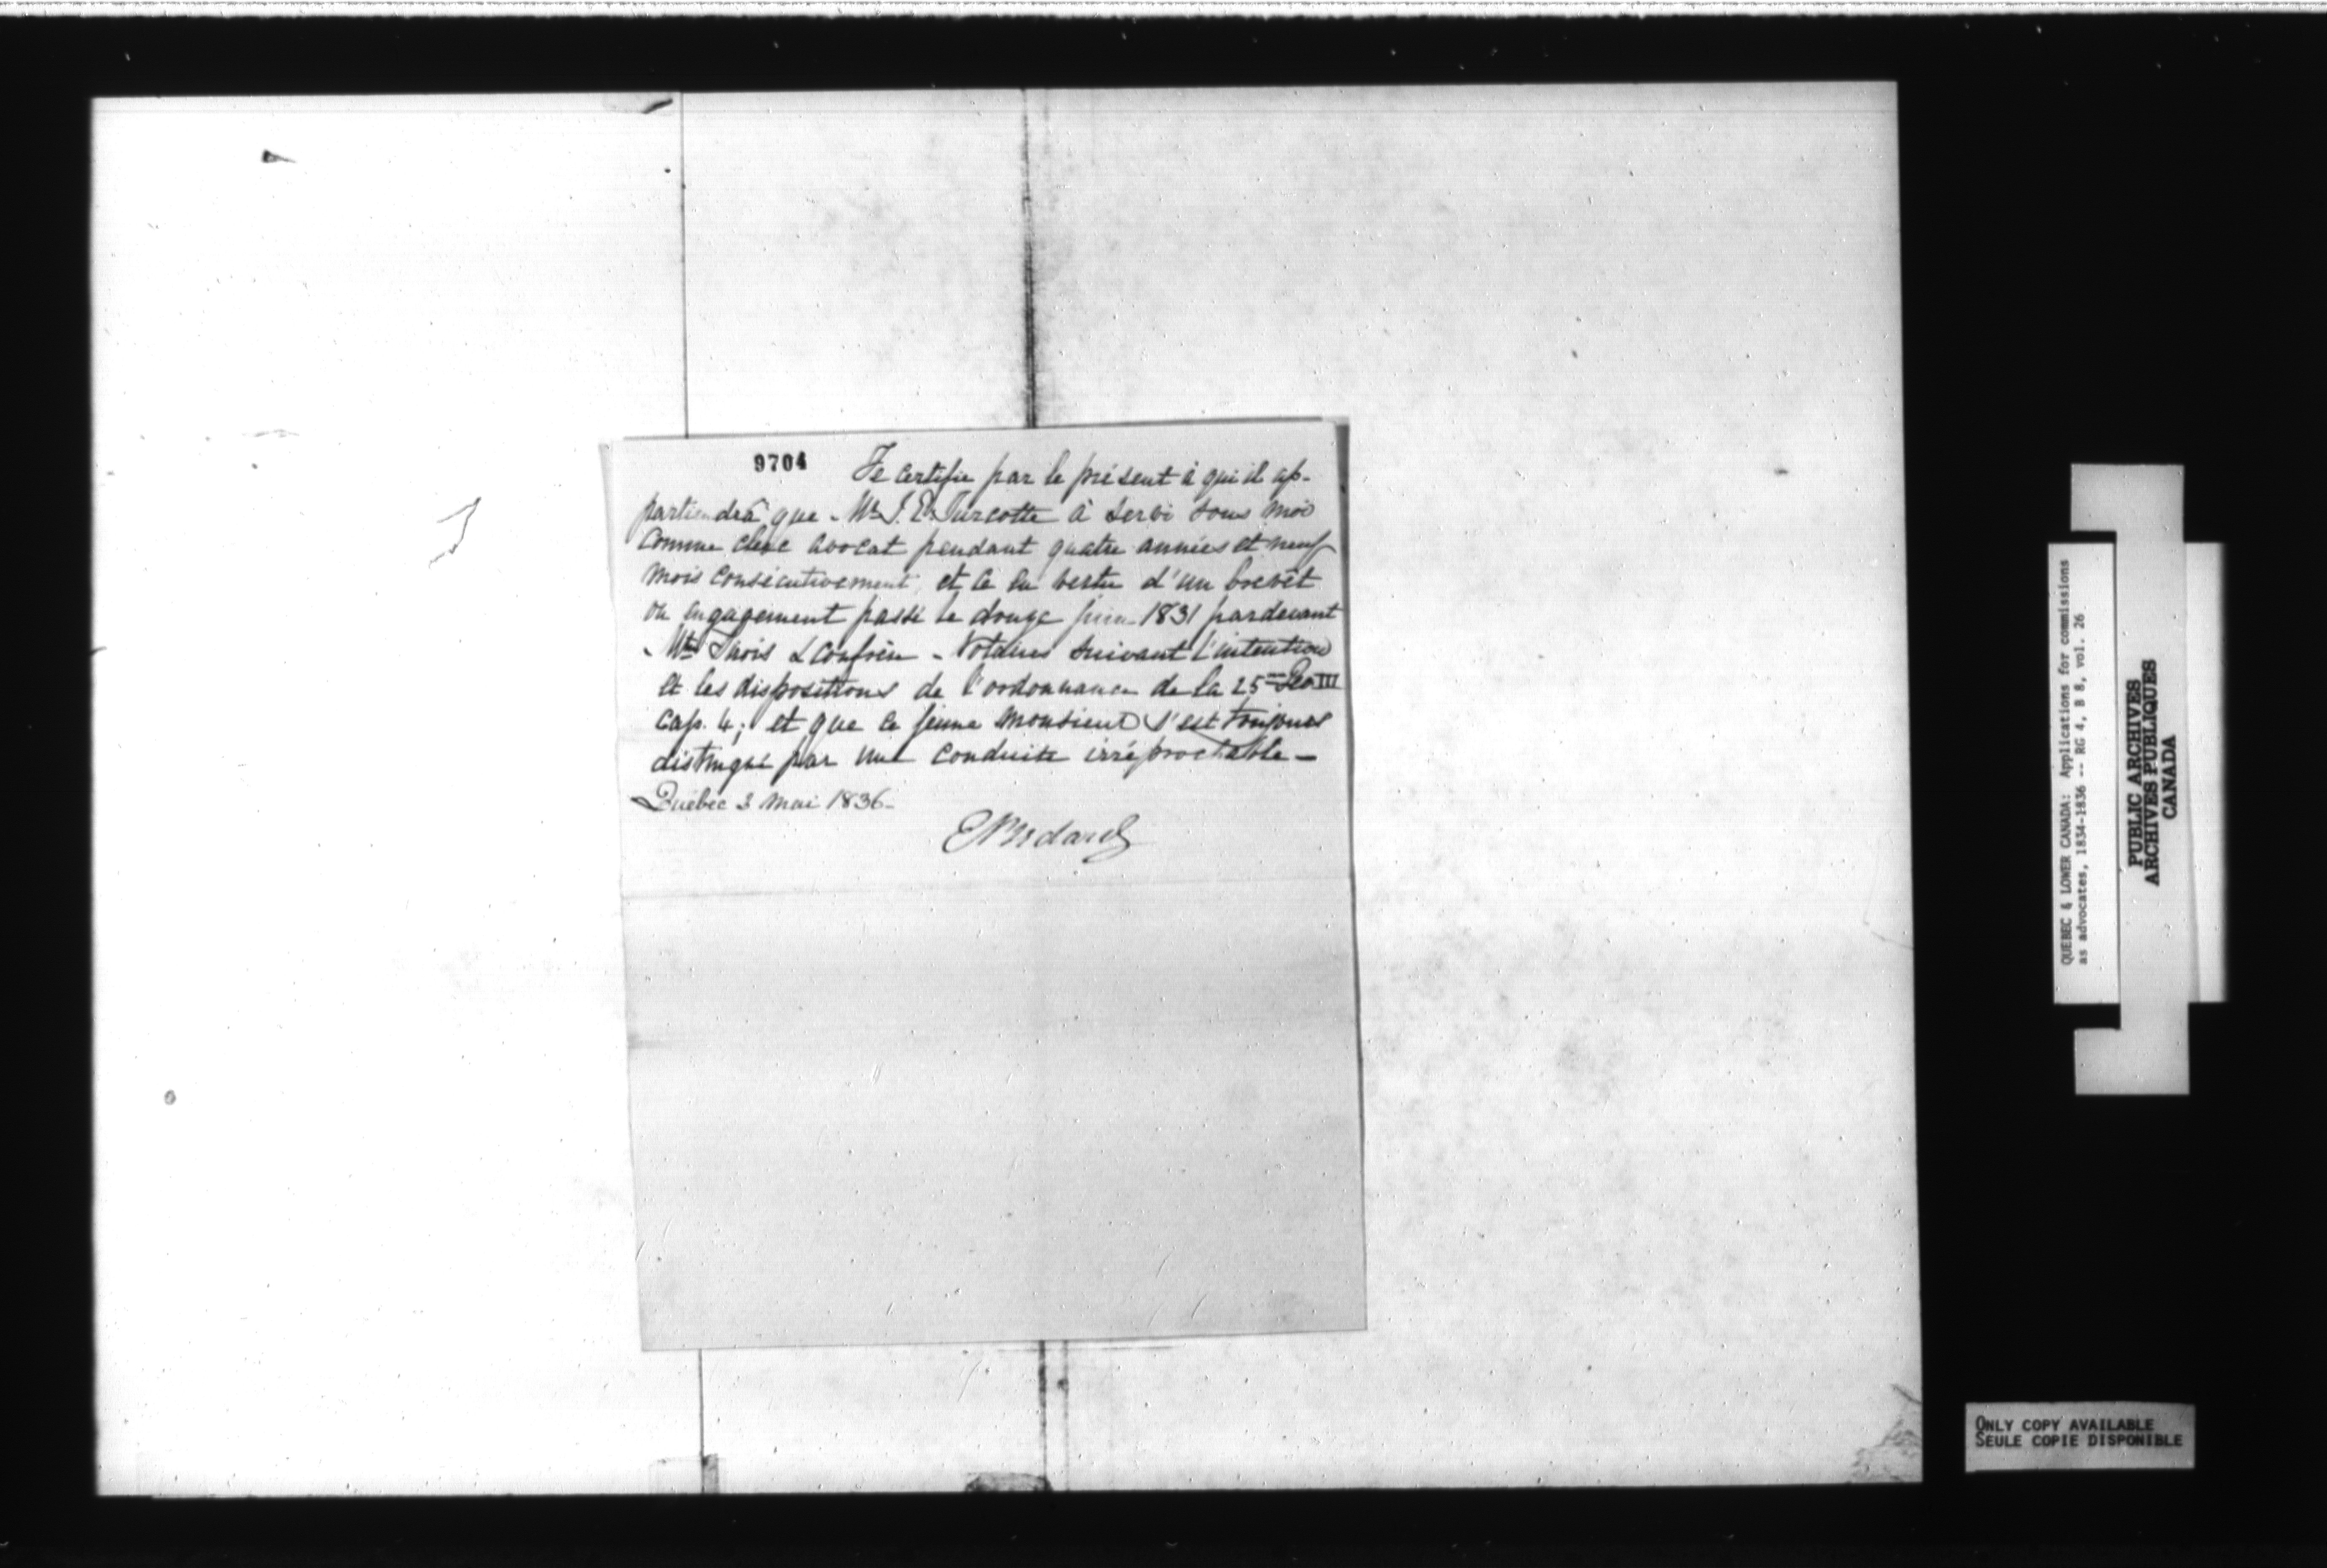 9704
Je certifie par le présent à qui il ap-
partiendrâ que Mr J. E. Turcotte à servi sous moi
comme clerc avocat pendant quatre années et neuf
mois consécutivement, et ce en vertu d'un brevêt
ou engagement passé le douze juin 1831 pardevant
Mtre & confrère Notaires suivant l'intention
et les dispositions de l'ordonnance de la 25 Geo III
cap. 4; et que ce jeune monsieur s'est toujours
distingué par une conduite irréprochable -
Québec 3 mai 1836 -
E Bedard
QUEBEC & LOWER CANADA: Applications for commissions
as advocates, 1834-1836 -- RG 4, B 8, vol. 26
PUBLIC ARCHIVES
ARCHIVES PUBLIQUES
CANADA
ONLY COPY AVAILABLE
SEULE COPIE DISPONIBLE